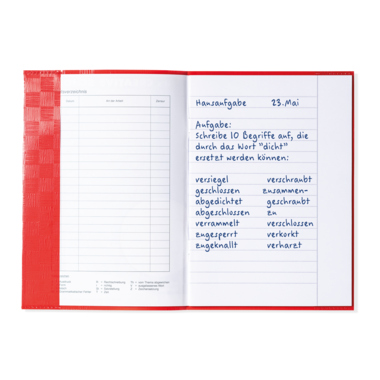 Hansaufgabe 23. Mai
Aufgabe:
Schreibe 10 Begriffe auf, die
durch das Wort "dicht"
ersetzt werden können:
versiegel verschraubt
geschlossen zusammen-
abgedichtet geschraubt
abgeschlossen zu
verrammelt verschlossen
zugesperrt verkorkt
zugeknallt verharzt